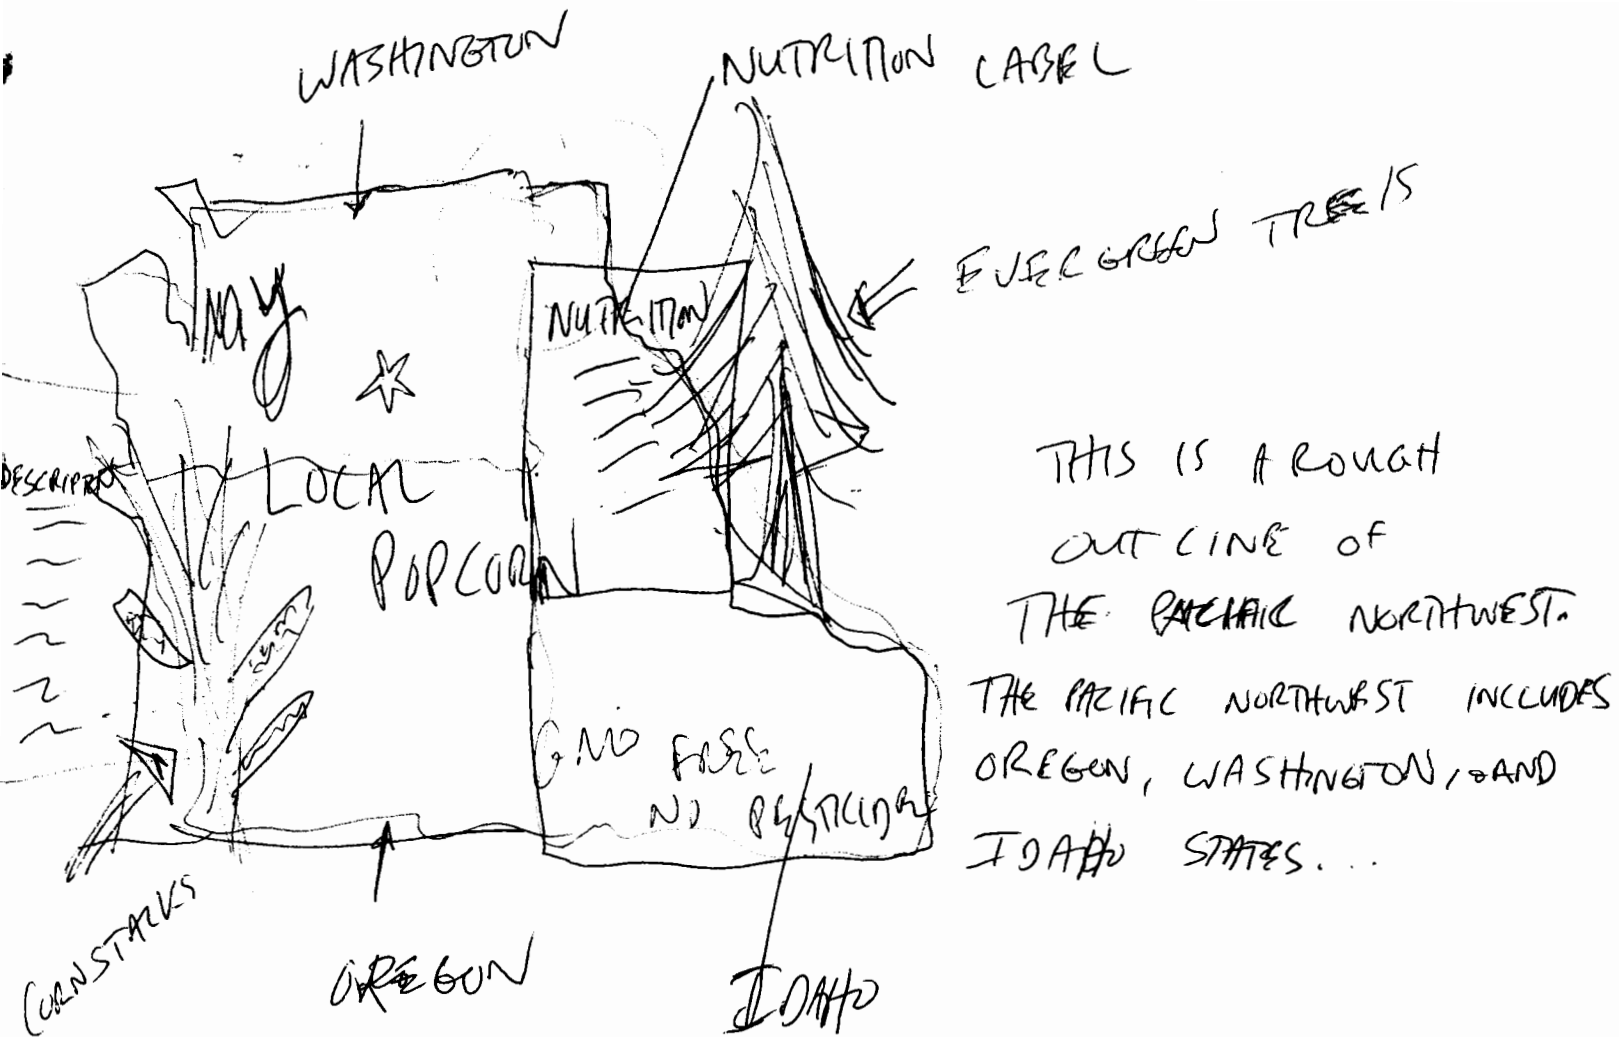 WASHINGTON
NUTRITION LABEL
EVERGREEN TREES
MY
NUTRITION
DESCRIPTN
LOCAL
POPCORN
THIS IS A ROUGH
OUTLINE OF
THE PACIFIC NORTHWEST.
THE PACIFIC NORTHWEST INCLUDES
OREGON, WASHINGTON, AND
IDAHO STATES...
GMO FREE
NO PESTICIDE
CORNSTALKS
OREGON
IDAHO